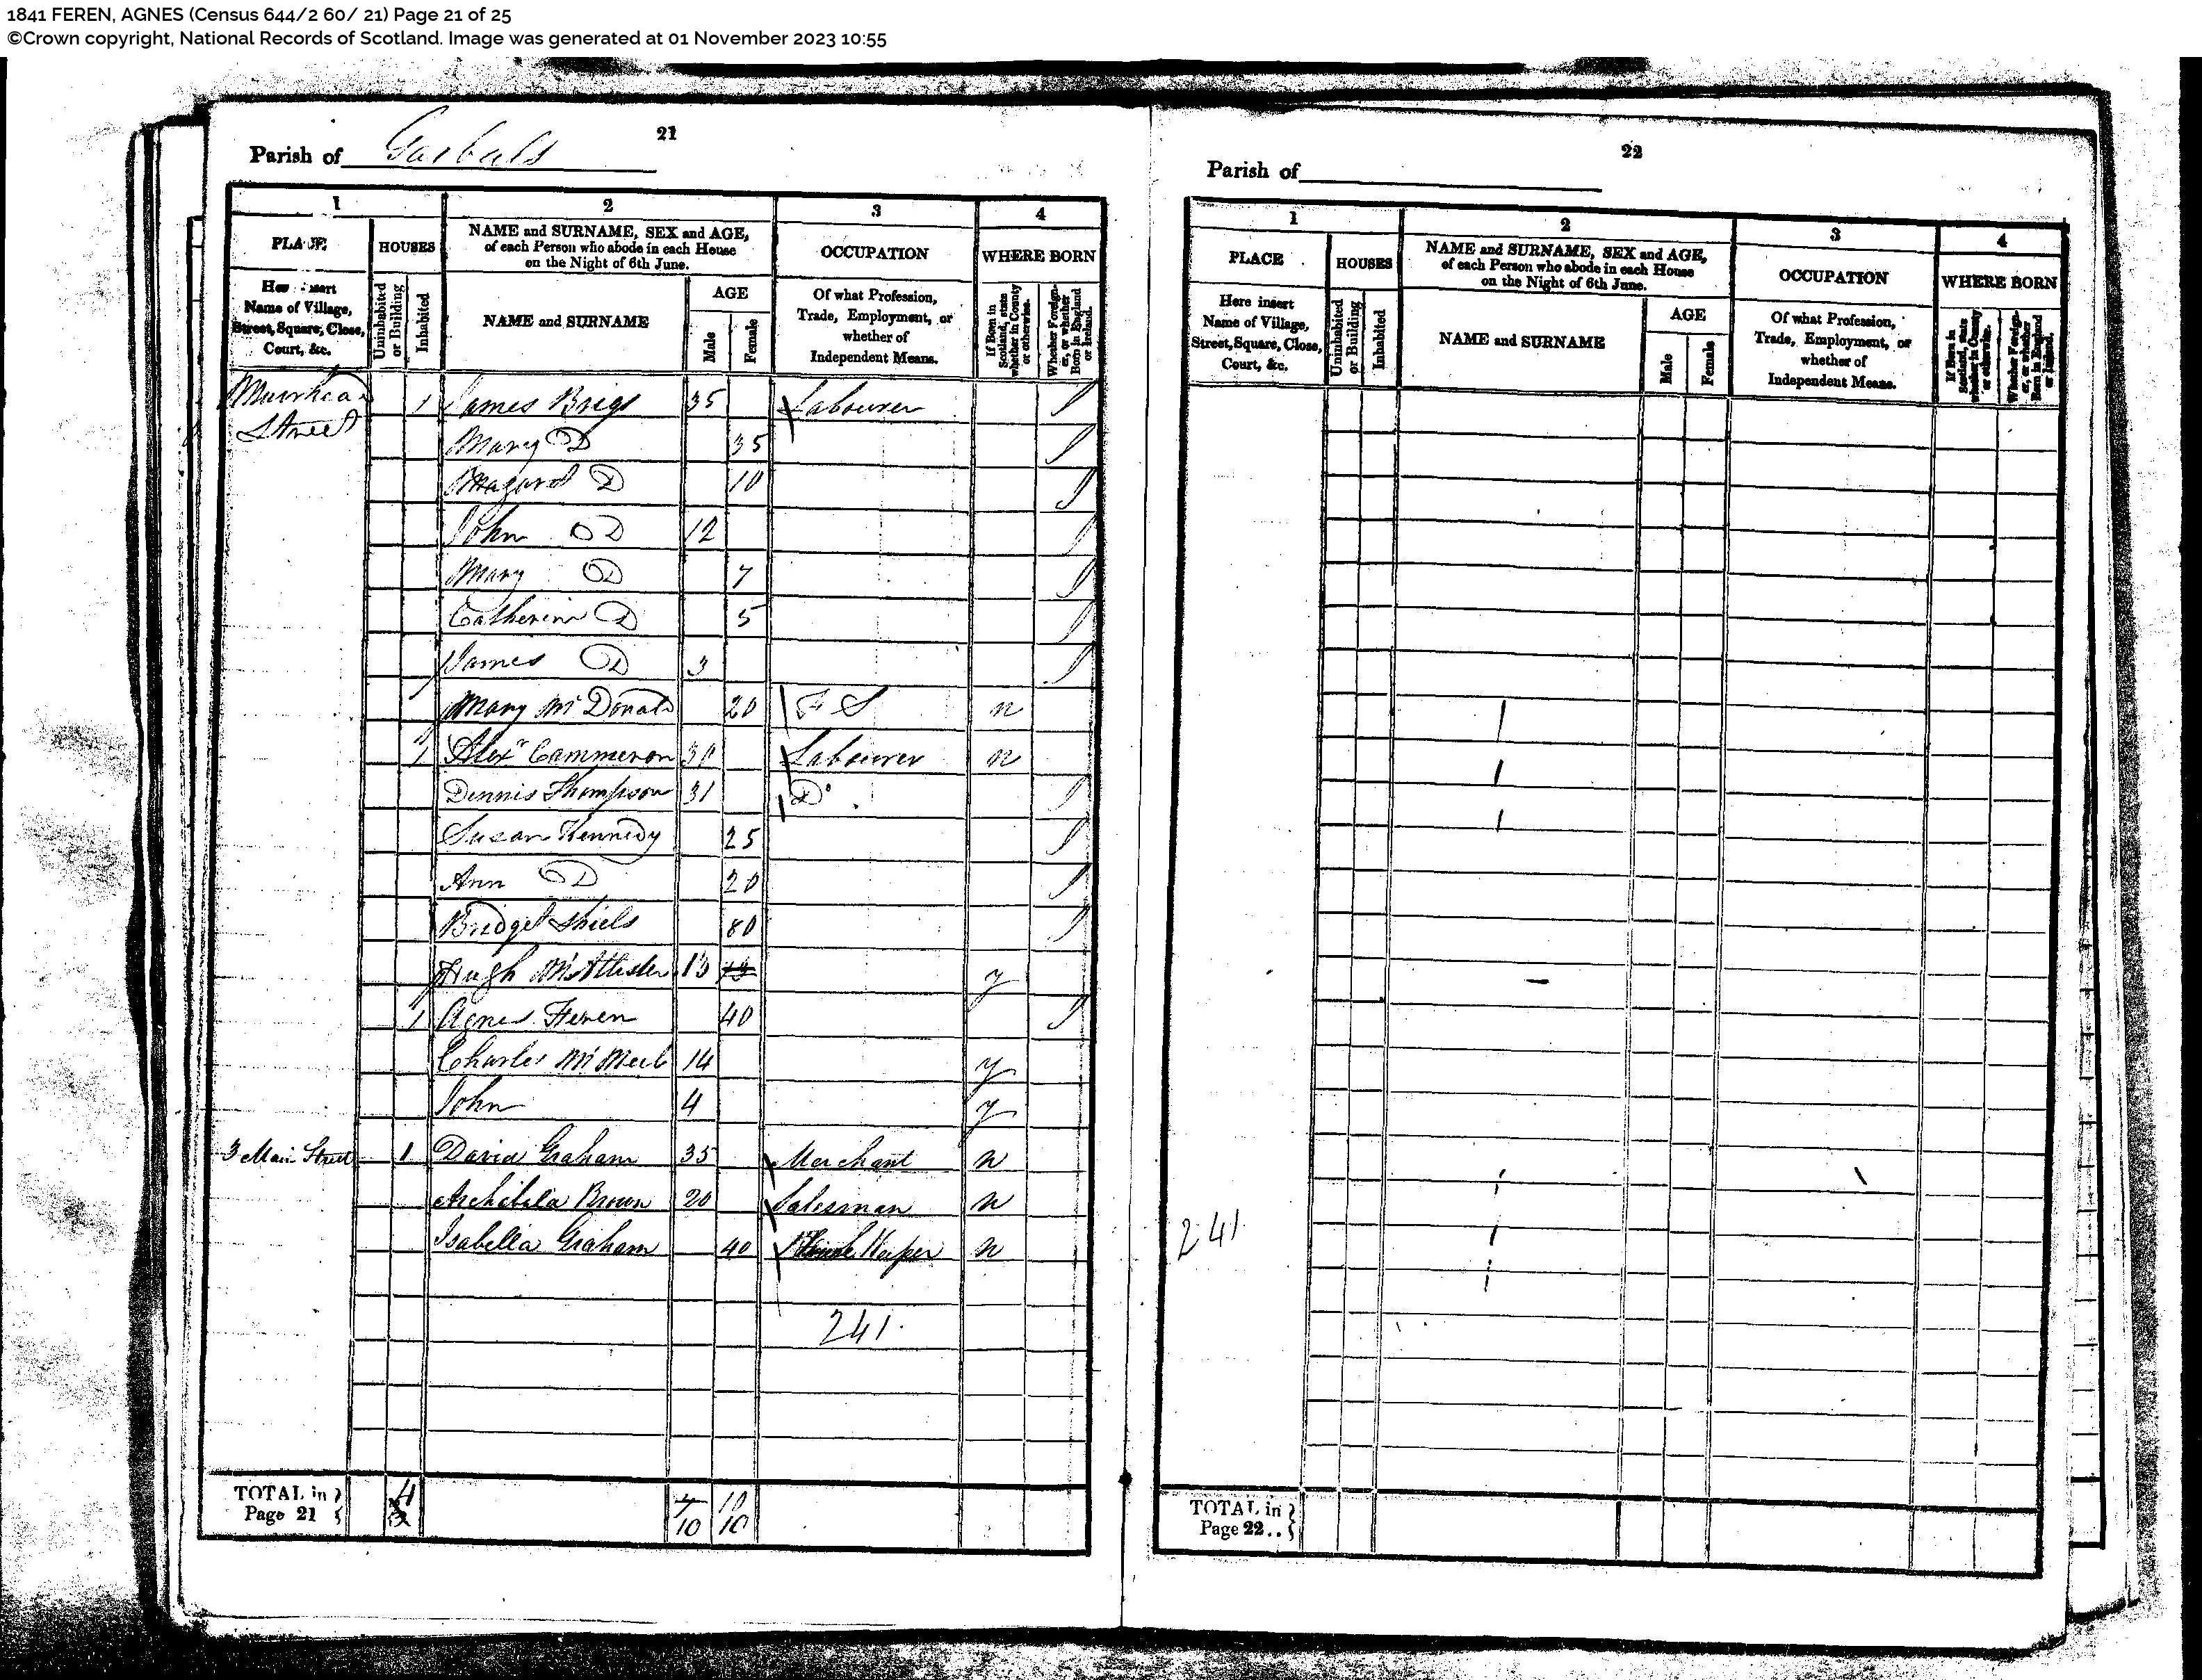 1841 FEREN, AGNES (Census 644/2 60/ 21) Page 21 of 25
©Crown copyright, National Records of Scotland. Image was generated at 01 November 2023 10:55
21
Parish of Gorbals
1 2 3 4
PLACE HOUSES NAME and SURNAME, SEX and AGE, of each Person who abode in each House on the Night of 6th June. OCCUPATION WHERE BORN
Here insert Name of Village, Street, Square, Close, Court, &c. Uninhabited or Building Inhabited NAME and SURNAME AGE Male Female Of what Profession, Trade, Employment, or whether of Independent Means. If Born in Scotland, state whether in County or otherwise. Whether Foreigner, or whether Born in England or Ireland.
Muirhead 1 James Brigs 35 Labourer I
Street Mary D 35 I
Magaret D 10 I
John D 12 I
Mary D 7 I
Catherin D 5 I
James D 3 I
Mary McDonald 20 F S n
1 Alexr Cammeron 30 Labourer n
Dennis Thompson 31 Do I
Susan Kennedy 25 I
Ann D 20 I
Bridget Shiels 80 I
Hugh McAllister 13 13 y
1 Agnes Feren 40 I
Charles 14 y
John 4 y
3 Main Street 1 David Graham 35 Merchant n
Archibald Brown 20 Salesman n
Isabella Graham 40 Keeper n
241
TOTAL in Page 21 4 10
10 10
22
Parish of
1 2 3 4
PLACE HOUSES NAME and SURNAME, SEX and AGE, of each Person who abode in each House on the Night of 6th June. OCCUPATION WHERE BORN
Here insert Name of Village, Street, Square, Close, Court, &c. Uninhabited or Building Inhabited NAME and SURNAME AGE Male Female Of what Profession, Trade, Employment, or whether of Independent Means. If Born in Scotland, state whether in County or otherwise. Whether Foreigner, or whether Born in England or Ireland.
241
TOTAL in Page 22..